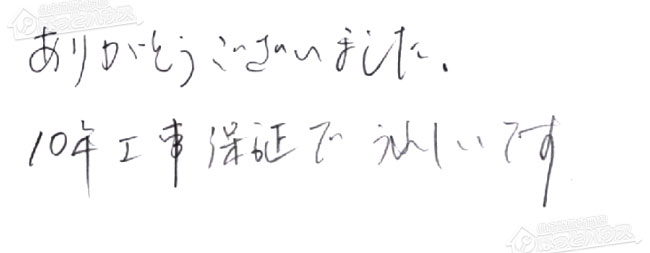 ありがとうございました.
10年工事保証で うれしいです